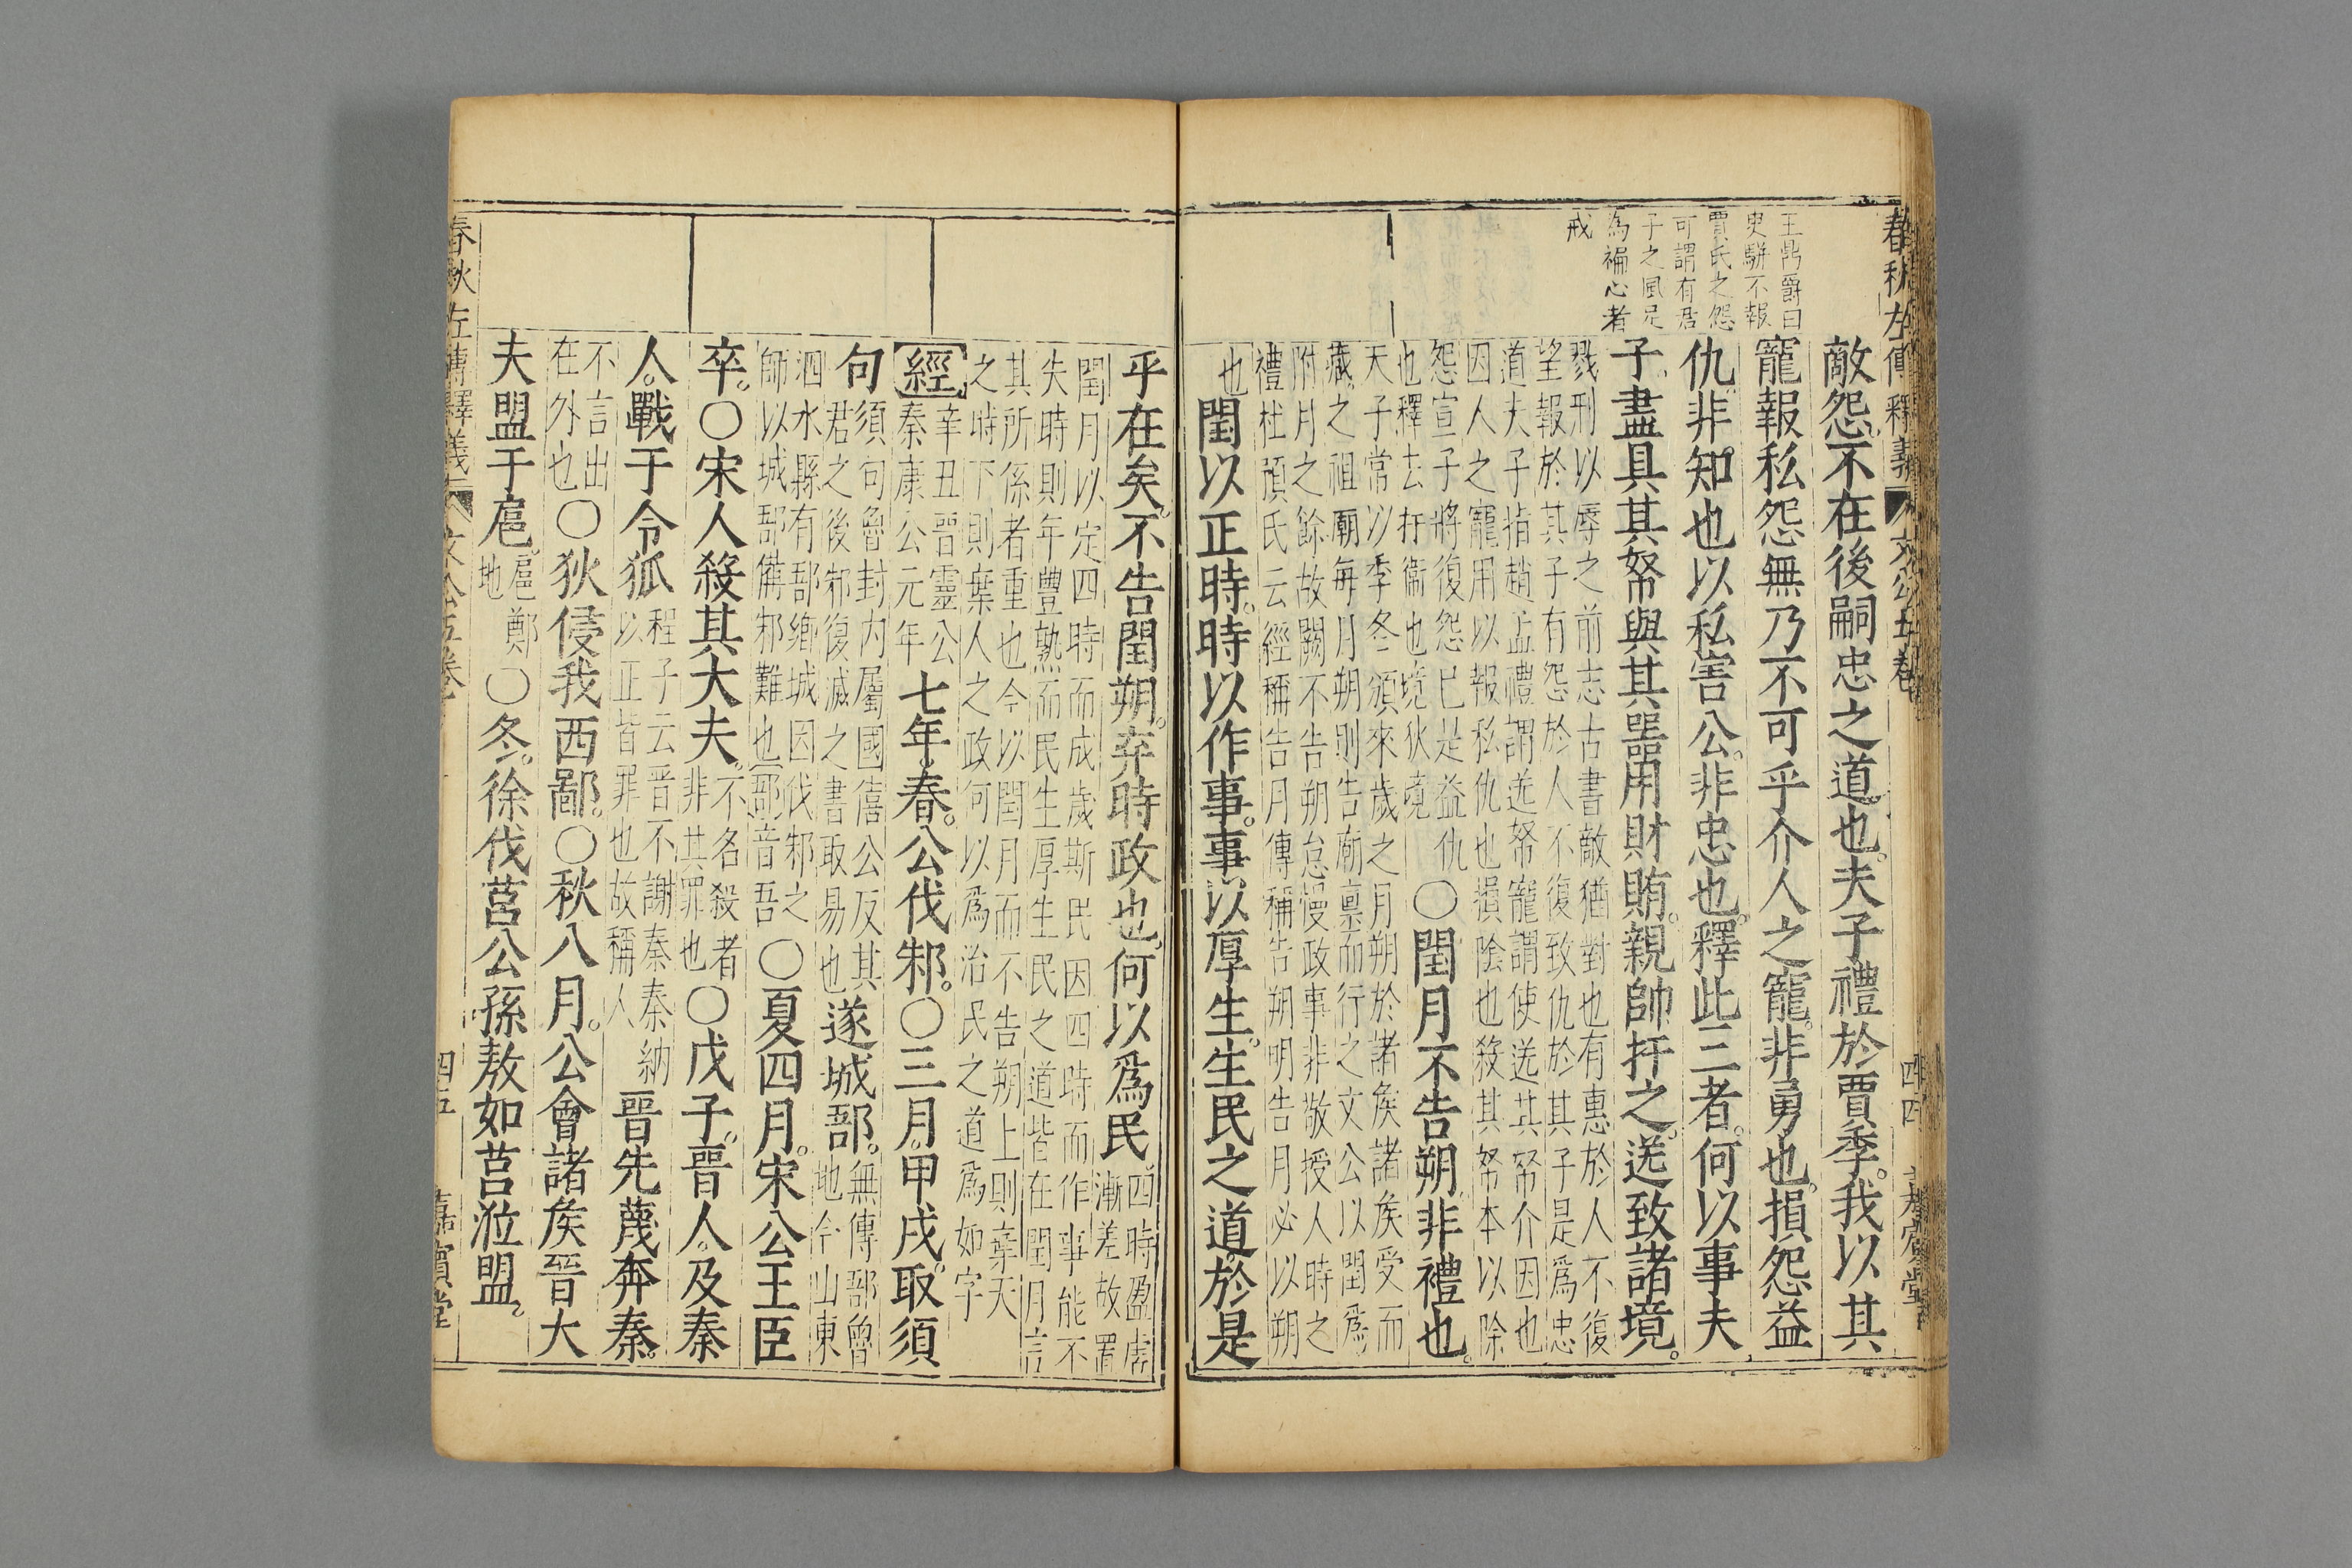 春秋左傳釋義
文公五卷
四四
王鼎爵曰
史駢不報
賈氏之怨
可謂有君
子之風足
為褊心者
戒
敵怨不在後嗣忠之道也夫子禮於賈季我以其
寵報私怨無乃不可乎介人之寵非勇也損怨益
仇非知也以私害公非忠也釋此三者何以事夫
子盡具其帑與其噐用財賄親帥扞之送致諸境
戮刑以辱之前志古書敵猶對也有惠於人不復
望報於其子有怨於人不復致仇於其子是爲忠
道夫子指趙孟禮謂送帑寵謂使送其帑介因也
因人之寵用以報私仇也損陰也殺其帑本以除
怨宣子將復怨已是益仇
也釋去扞衞也境狄竟
〇閏月不告朔非禮也
天子常以季冬頒來歲之月朔於諸矦諸矦受而
藏之祖廟每月朔則告廟禀而行之文公以閏爲
附月之餘故闕不告朔怠慢政事非敬授人時之
禮杜預氏云經稱告月傳稱告朔明告月必以朔
也閏以正時時以作事事以厚生生民之道於是
乎在矣不告閏朔弃時政也何以爲民
四時盈虛
漸差故置
閏月以定四時而成歲斯民因四時而作事能不
失時則年豐熟而民生厚生民之道皆在閏月言
其所係者重也今以閏月而不告朔上則棄天
之時下則棄人之政何以爲治民之道爲如字
經
辛丑晉靈公
秦康公元年
七年春公伐邾〇三月甲戌取須
句
須句魯封内屬國僖公反其
君之後邾復滅之書取易也
遂城郚
無傳郚魯
地今山東
泗水縣有郚鄉城因伐邾之
師以城郚備邾難也郚音吾
〇夏四月宋公王臣
卒〇宋人殺其大夫
不名殺者
非其罪也
〇戊子晉人及秦
人戰于令狐
程子云晉不謝秦秦納
以正皆罪也故稱人
晉先蔑奔秦
不言出
在外也
〇狄侵我西鄙〇秋八月公會諸矦晉大
夫盟于扈
扈鄭
地
〇冬徐伐莒公孫敖如莒涖盟
春秋左傳釋義
文公五卷
四五
嘉賓堂